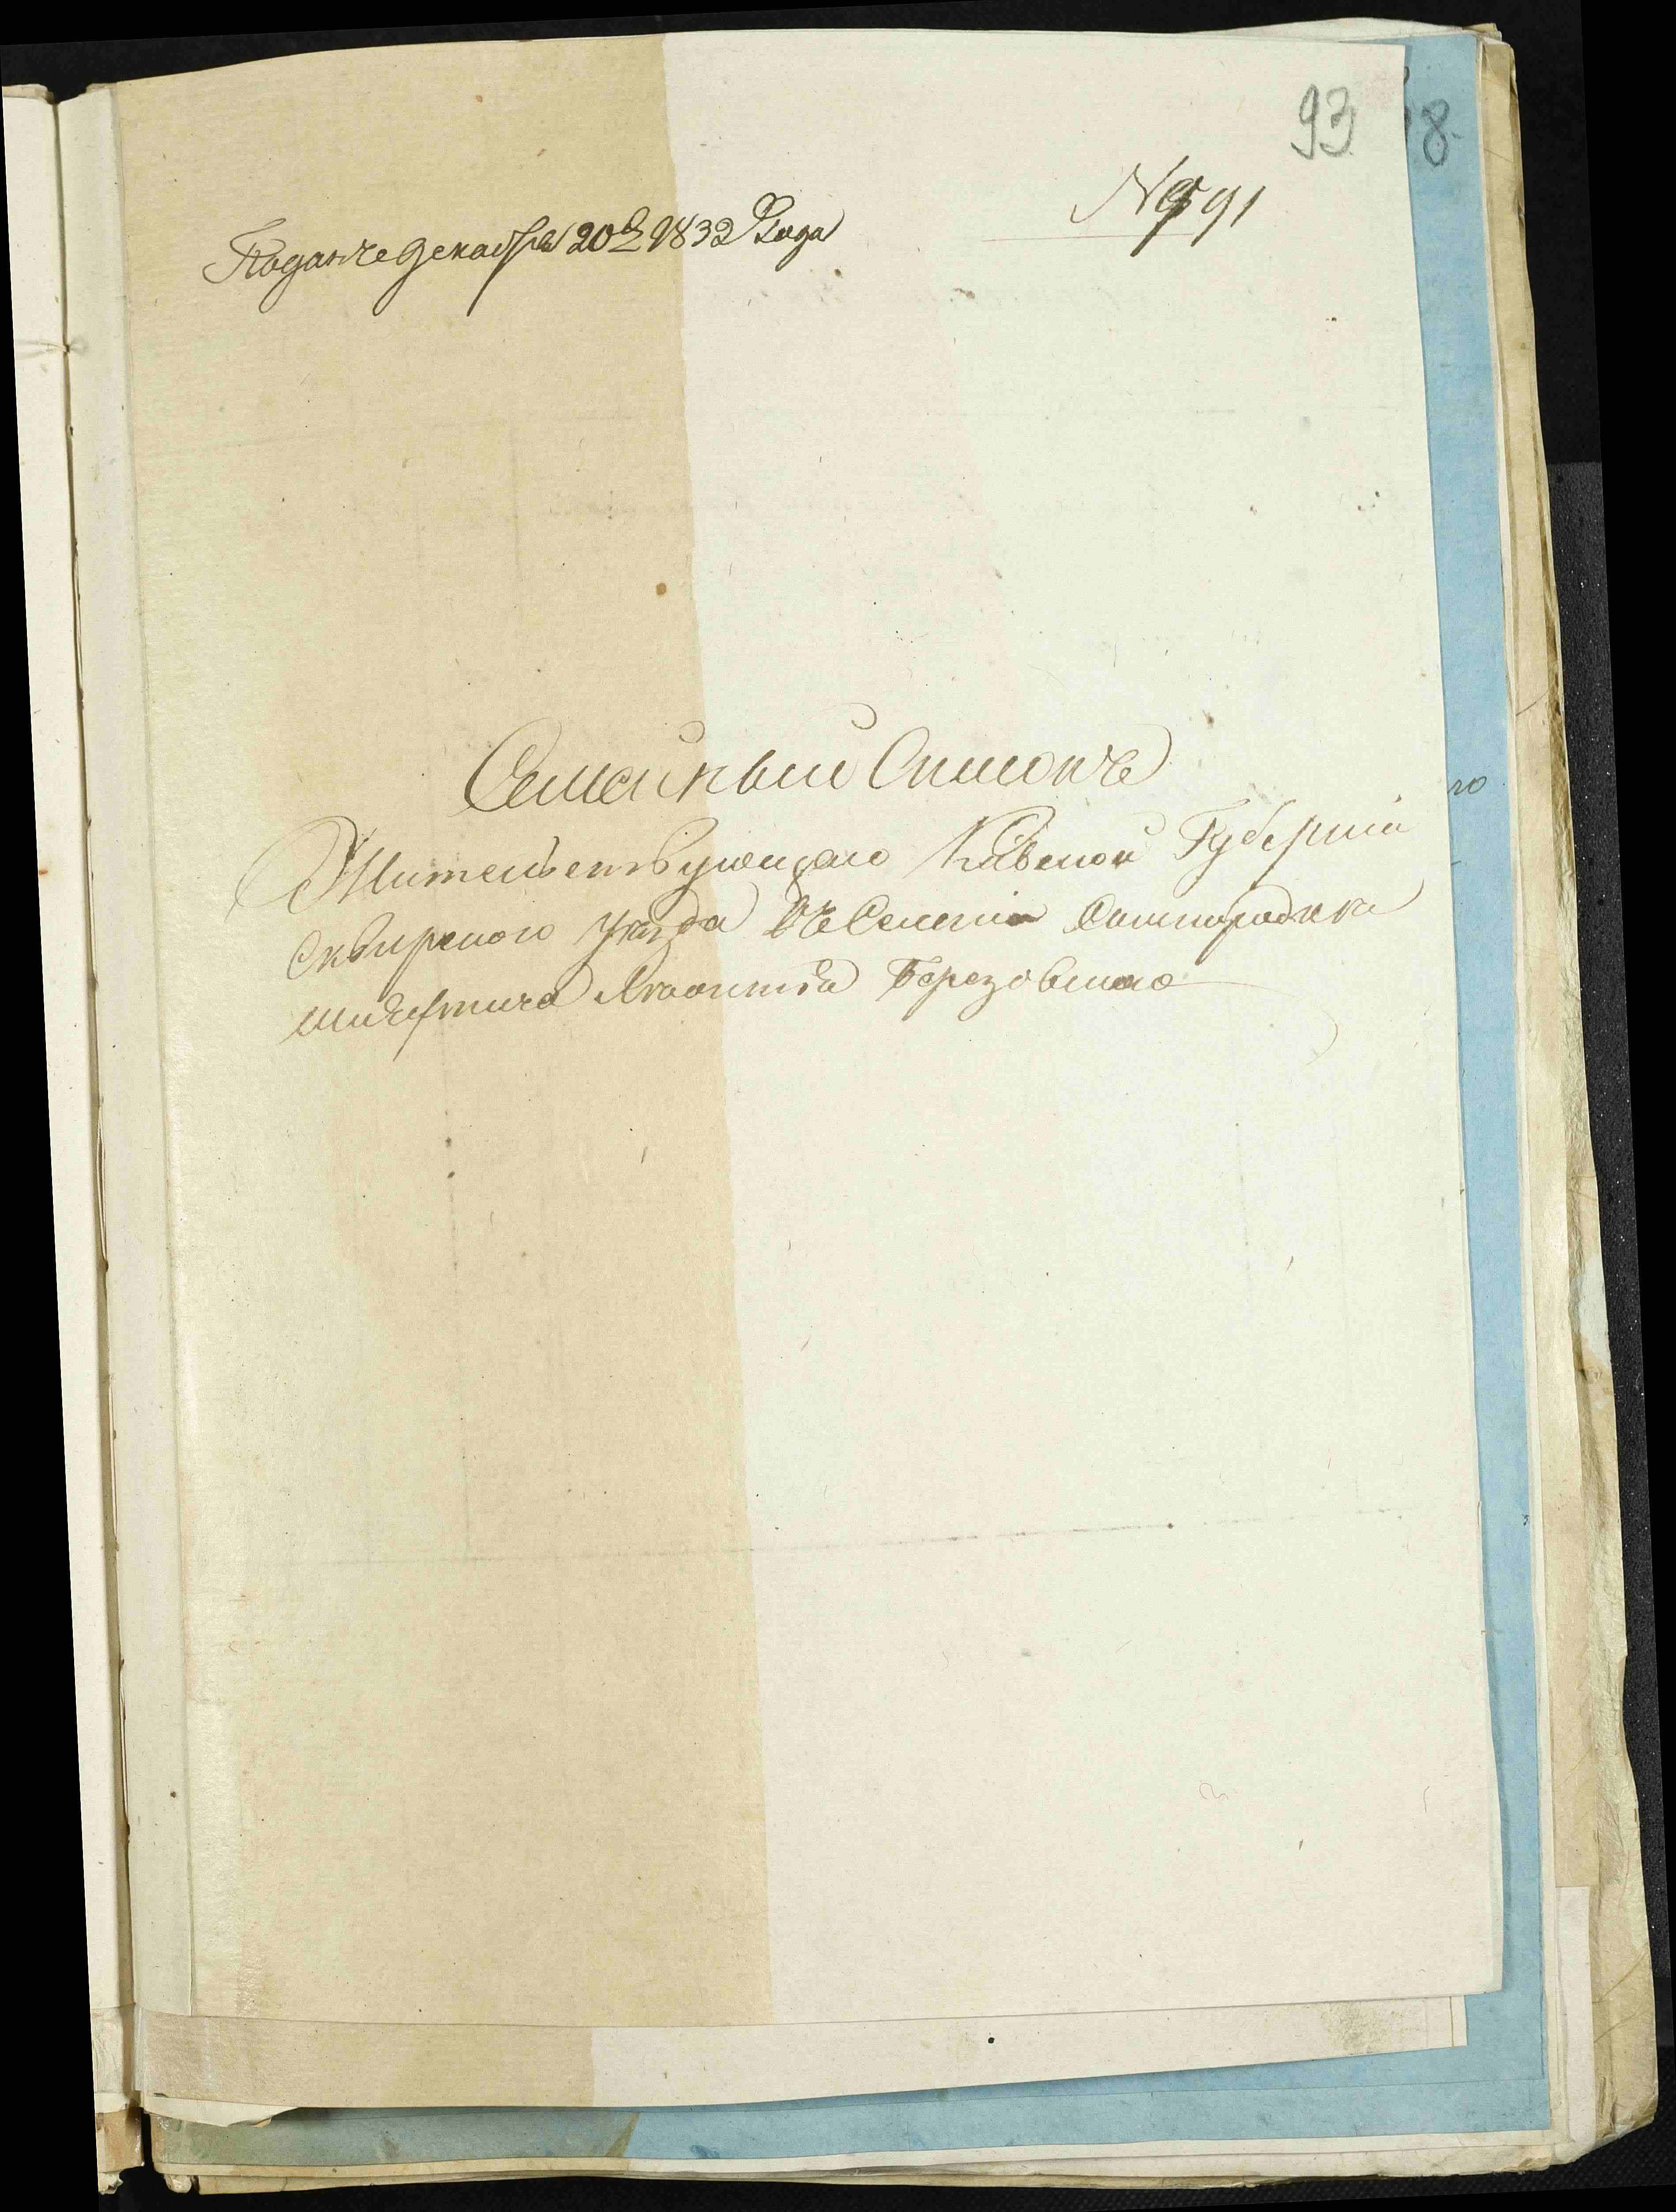 93
8.
N 591
Поданъ декабря 20д 1832 Года
Семейный Списокъ
Жительствующаго Кіевской Губерніи
Сквирского уезда въ Селеніи Самгородка
шляхтича Березовскаго
го